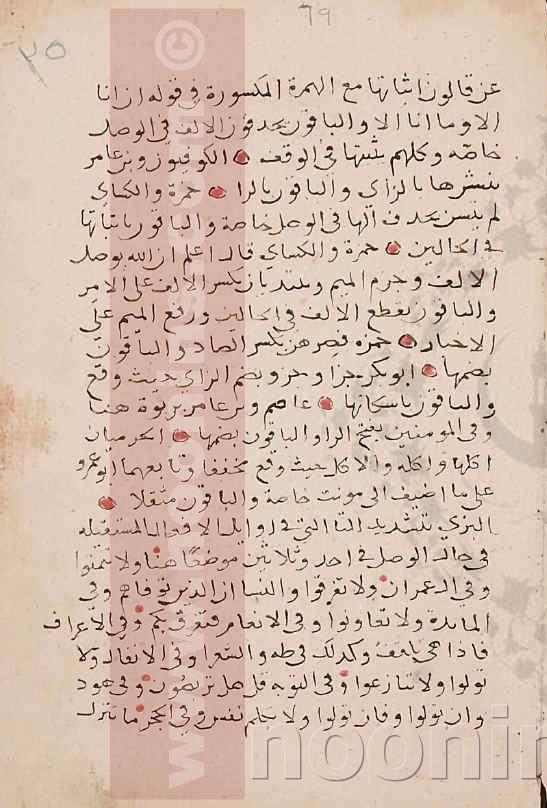 69
٢٥
عن قالون اثباتها مع الهمزة المكسورة في قوله ان انا
الا وما انا الا والباقون يحذفون الالف في الوصل
خاصه وكلهم يثبتها في الوقف الكوفيون وبن عامر
ننشزها بالزاي والباقون بالرا حمزة والكساي
لم يتسن بحذف الها في الوصل خاصة والباقون باثباتها
في الحالين حمزة والكساي قال اعلم ان الله بوصل
الالف وجزم الميم ويبتديان بكسر الالف على الامر
والباقون بقطع الالف في الحالين ورفع الميم على
الاخبار حمزه فصرهن بكسر الصاد والباقون
بضمها ابو بكر جزا وجزو بضم الزاي حيث وقع
والباقون باسكانها عاصم وبن عامر بربوة هنا
وفي المومنين بفتح الرا والباقون بضمها الحرميان
اكلها واكله والاكل حيث وقع مخففا وتابعهما ابو عمرو
على ما اضيف الى مونث خاصة والباقون مثقلا
البزي بتشديد التا التي في اوايل الافعال المستقبله
في حال الوصل في احد وثلاثين موضعًا هنا ولا تيمموا
وفي ال عمران ولا تفرقوا والنسا ان الذين توفاهم وفي
المايدة ولا تعاونوا وفي الانعام فتفرق بكم وفي الاعراف
فاذا هي تلقف وكذلك في طه والشعرا وفي الانفال ولا
تولوا ولا تنازعوا وفي التوبه قل هل تربصون وفي هود
وان تولوا وفان تولوا ولا تكلم نفس وفي الحجر ما تنزل
www.
noorin